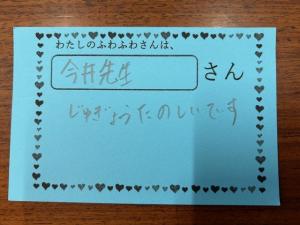 わたしのふわふわさんは、
今井先生 さん
じゅぎょうたのしいです